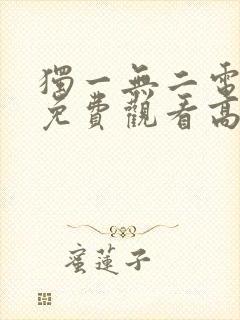 獨一無二電
免費觀看高
蜜蓮子